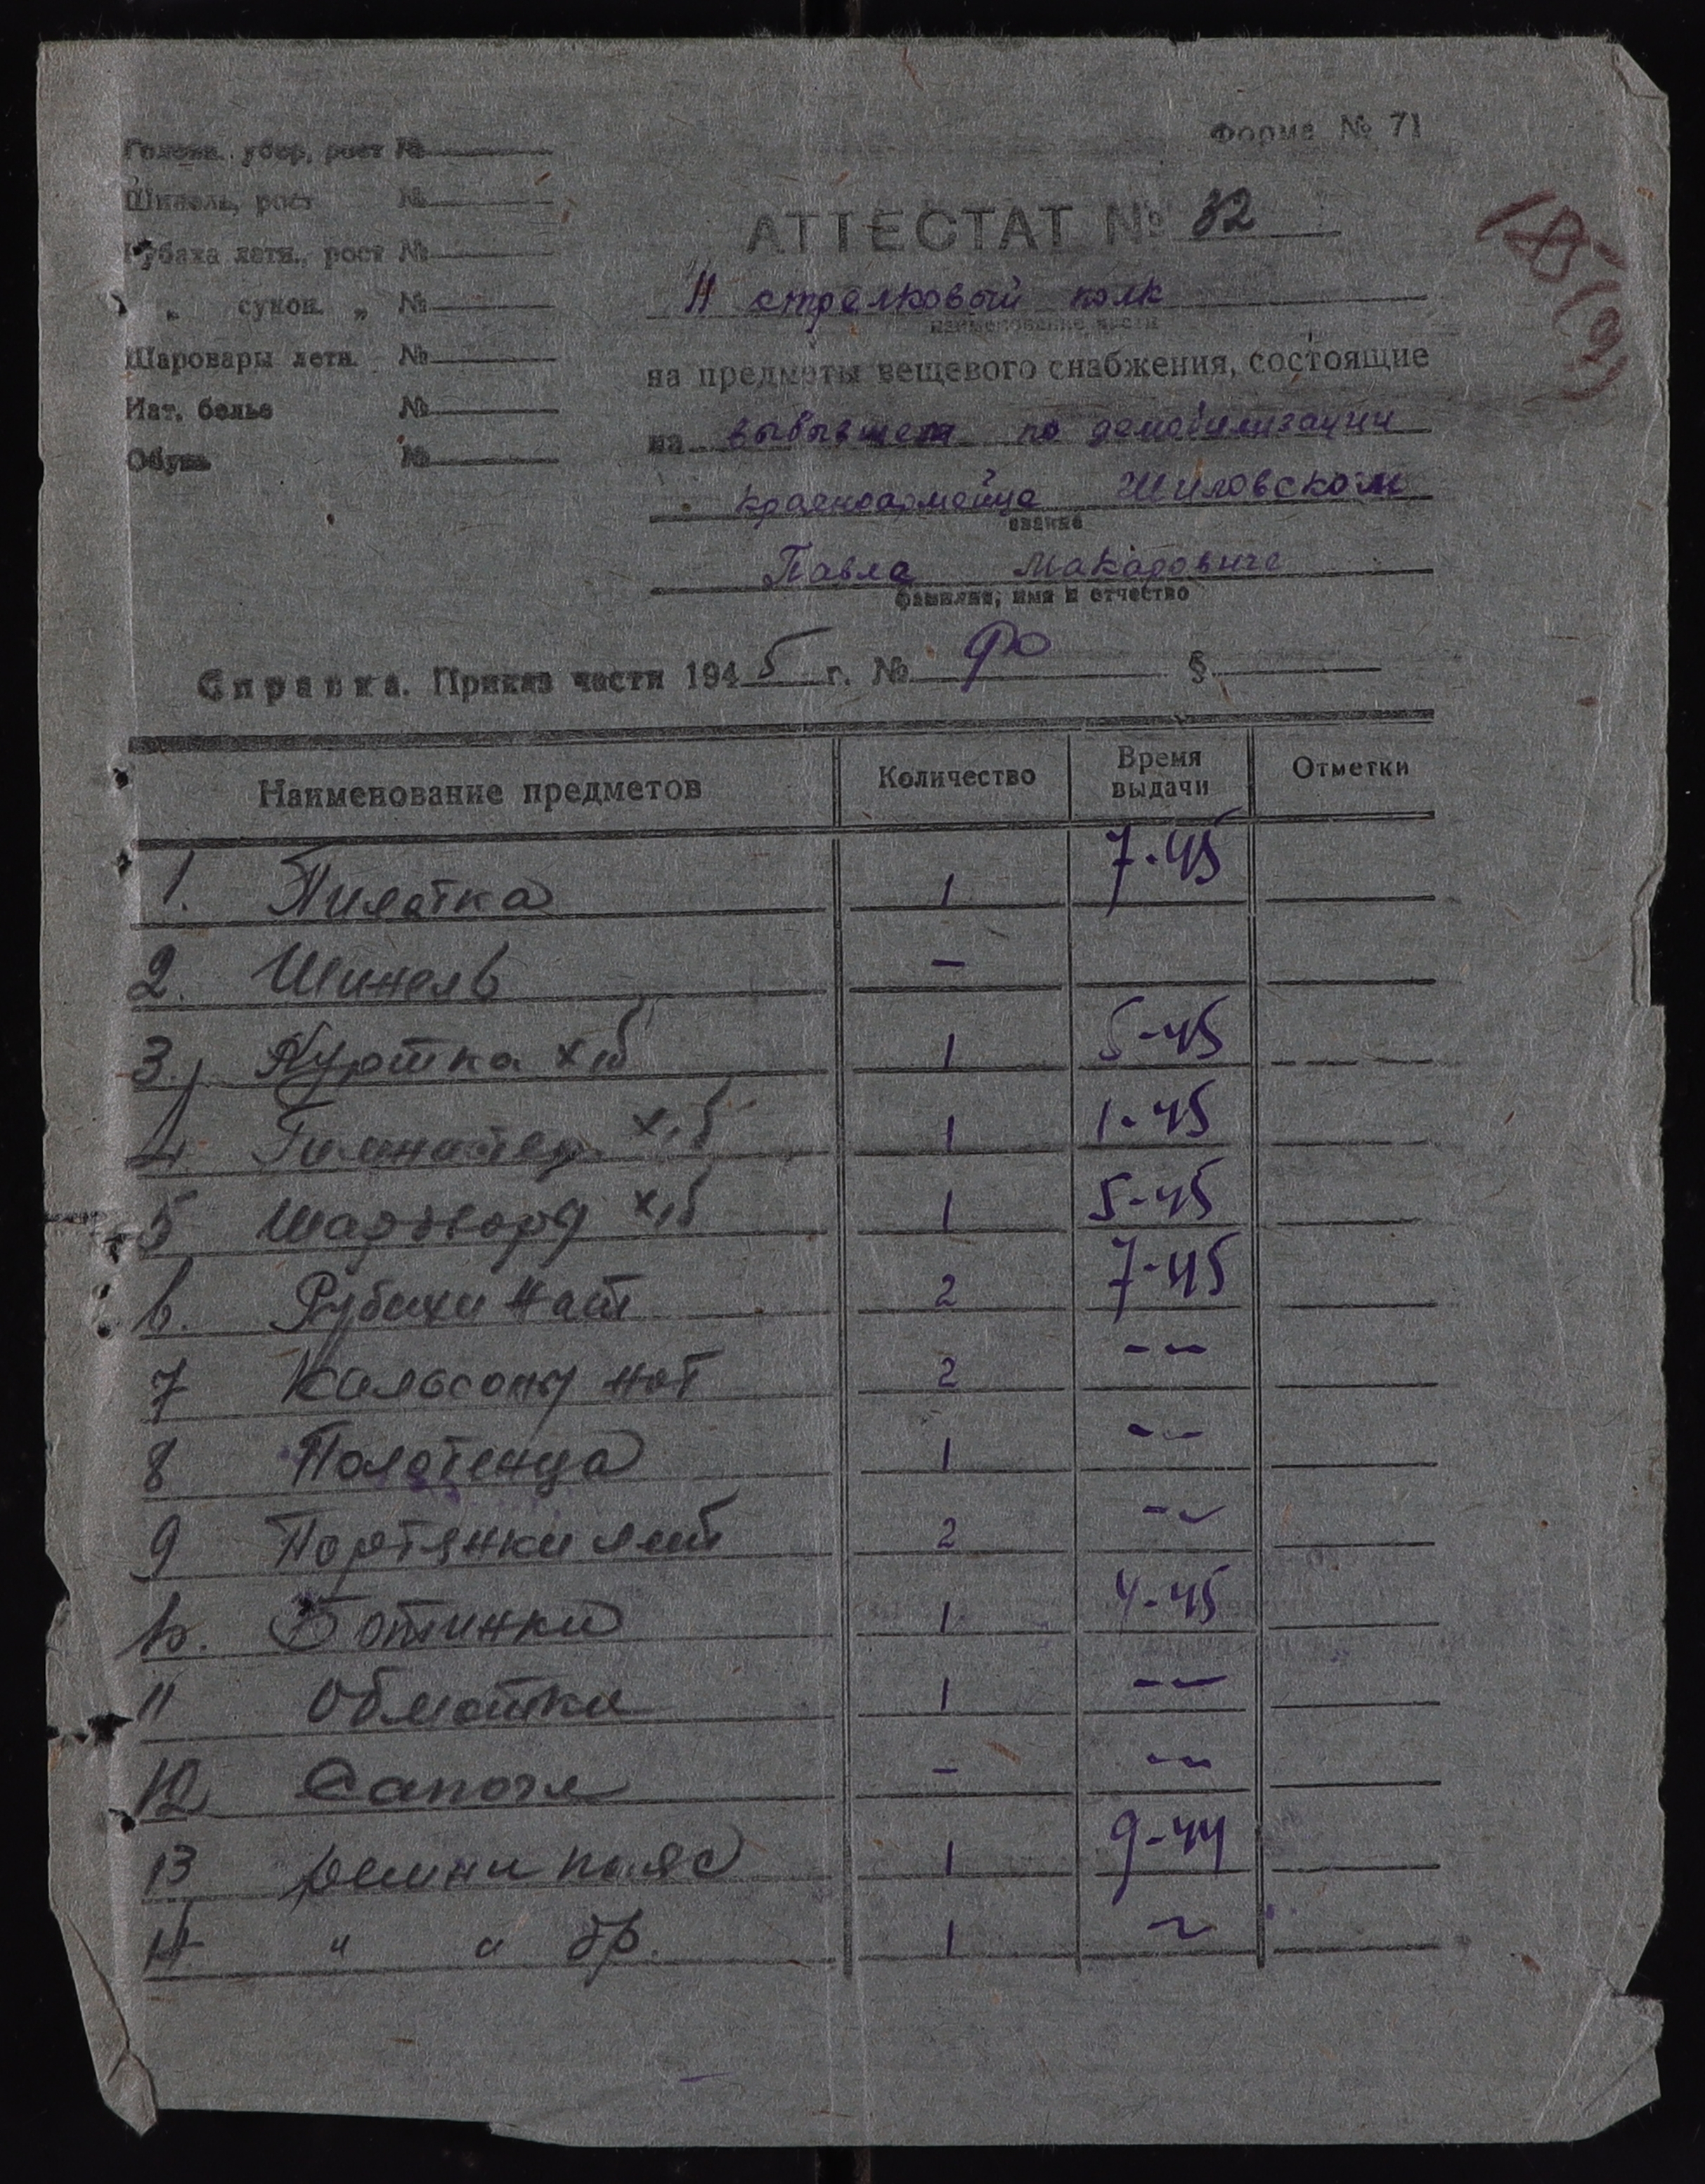 Форма № 71
Головн. убор, рост №
Шинель, рост №
Рубаха летн., рост №
" " сукон. " №
Шаровары летн. №
Нат. белье №
Обувь №
АТТЕСТАТ № 32
11 стрелковый полк
наименование части
на предметы вещевого снабжения, состоящие
на выбывшем по демобилизации
красноармейце Шиловском
звание
Павла Макаровиче
фамилия, имя и отчество
Справка. Приказ части 1945 г. № §
Наименование предметов Количество Время выдачи Отметки
1. Пилотка 1 7-45
2. Шинель -
3. Куртка х/б 1 5-45
4 Гимнастер. х/б 1 1-45
5 Шаровары х/б 1 5-45
6. Рубахи нат 2 7-45
7 Кальсоны нат 2 - -
8 Полотенца 1 - -
9 Портянки лет 2 - -
10. Ботинки 1 4-45
11 Обмотки 1 - -
12 Сапоги - - -
13 Ремни пояс 1 9-44
14. " " бр. 1 ~
18 (9)